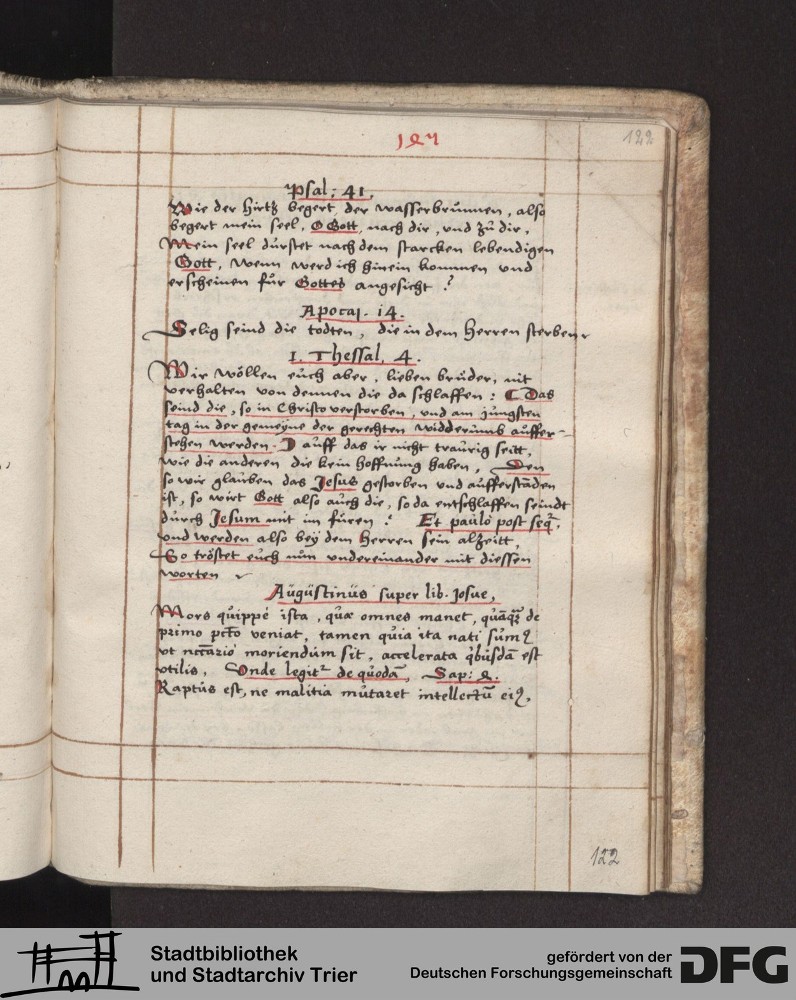 127
122
Psal: 41.
Wie der Hirtz begert, der wasserbrůnnen, also
begert mein seel, O Gott, nach dir, und zů dir,
Mein seel důrstet nach dem starcken lebendigen
Gott, Wenn werd ich hinein kommen und
erscheinen fůr Gottes angesicht?
Apocal. 14.
Selig seind die todten, die in dem Herren sterben
1. Thessal. 4.
Wir wöllen eůch aber, lieben brůder, nit
verhalten von dennen die da schlaffen: ( Das
seind die, so in Christo verstorben, und am jůngsten
tag in der gemeyne der gerechten widderumb auffer-
stehen werden. ) auff das ir nicht traůrig seitt,
wie die anderen die kein hoffnůng haben, Den
so wir glaůben das Jesus gestorben und aufferstāden
ist, so wirt Gott also aůch die, so da entschlaffen seindt
důrch Jesum mit im fůren: Et paůlò post seq̃,
und werden also beÿ dem Herren sein alzeitt,
So tröstet eůch nůn undereinander mit diessen
worten
Aůgůstinůs super lib. Josue,
Mors qůippè ista, quæ omnes manet, qůāq̃ de
primo pcto veniat, tamen qůia ita nati sůmꝰ
vt nccariò moriendům sit, accelerata qbůsdā est
vtilis, Vnde legitr de qůodā, Sap: 4.
Raptůs est, ne malitia můtaret intellectū eiꝰ,
122
Stadtbibliothek
und Stadtarchiv Trier
gefördert von der
Deutschen Forschungsgemeinschaft
DFG